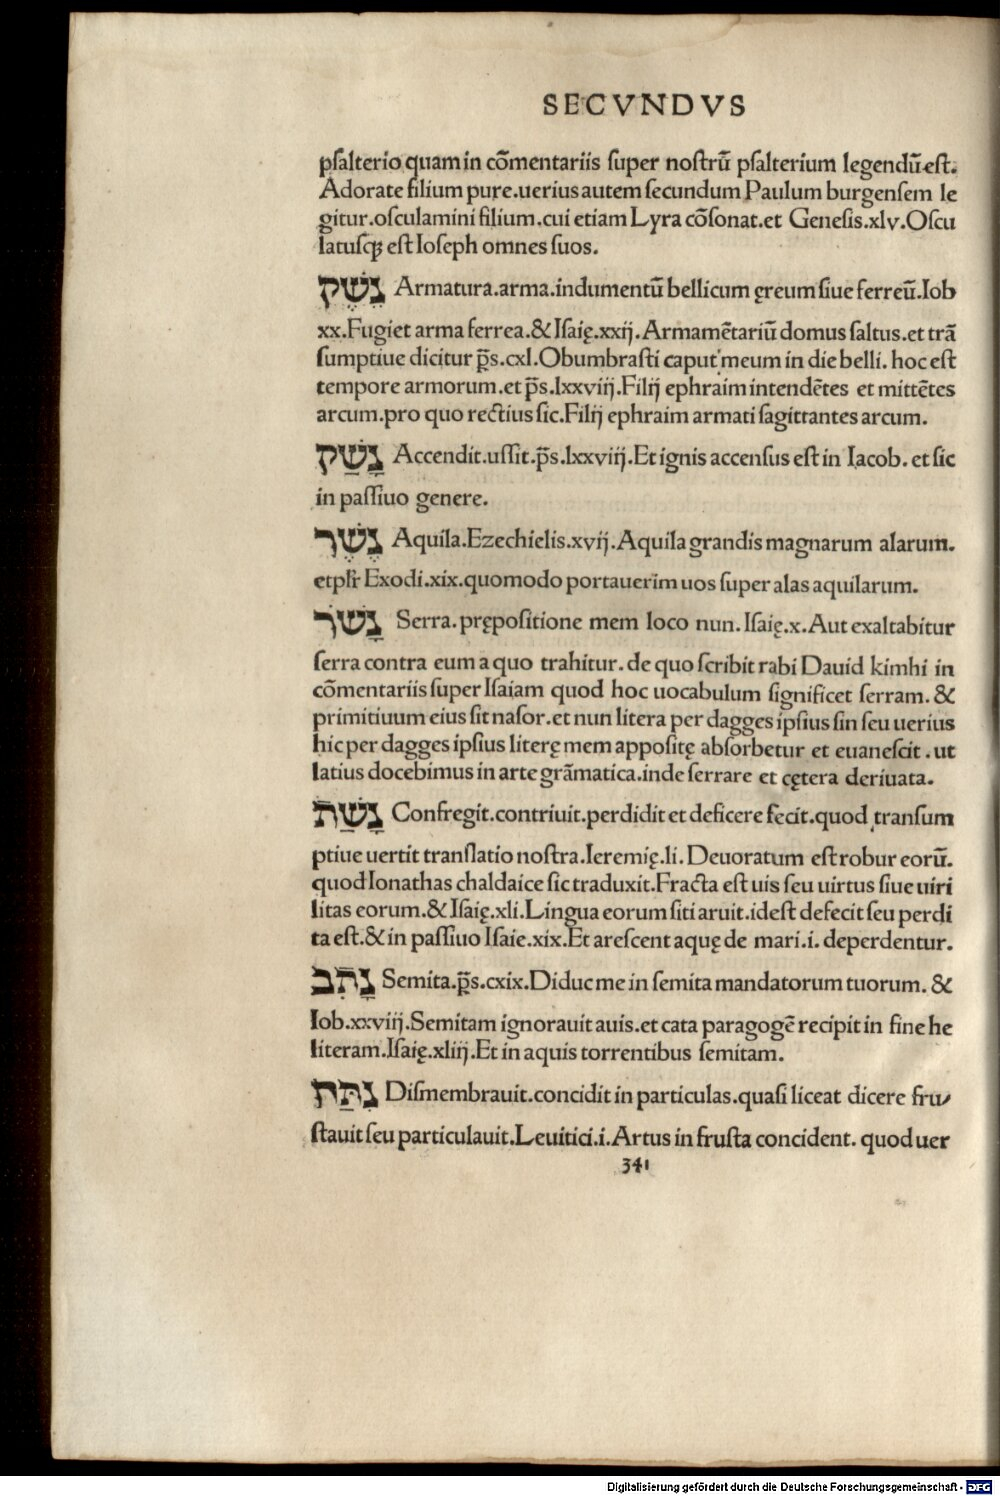 SECVNDVS
pſalterio quam in cõmentariis ſuper noſtrũ pſalterium legendũ eſt.
Adorate filium pure.uerius autem ſecundum Paulum burgenſem le
gitur.oſculamini filium.cui etiam Lyra cõſonat.et Geneſis.xlv.Oſcu
latuſqꝫ eſt Ioſeph omnes ſuos.
נֶשֶׁק Armatura.arma.indumentũ bellicum ęreum ſiue ferreũ.Iob
xx.Fugiet arma ferrea.& Iſaię.xxij.Armamẽtariũ domus ſaltus.et trã
ſumptiue dicitur p̃s.cxl.Obumbraſti caput meum in die belli. hoc eſt
tempore armorum.et p̃s.lxxviij.Filij ephraim intendẽtes et mittẽtes
arcum.pro quo rectius ſic.Filij ephraim armati ſagittantes arcum.
נָשַׁק Accendit.uſſit.p̃s.lxxviij.Et ignis accenſus eſt in Iacob. et ſic
in paſſiuo genere.
נֶשֶׁר Aquila.Ezechielis.xvij.Aquila grandis magnarum alarum.
et plr̃ Exodi.xix.quomodo portauerim uos ſuper alas aquilarum.
נָשׂר Serra. prępoſitione mem loco nun. Iſaię.x.Aut exaltabitur
ſerra contra eum a quo trahitur. de quo ſcribit rabi Dauid kimhi in
cõmentariis ſuper Iſaiam quod hoc uocabulum ſignificet ſerram. &
primitiuum eius ſit naſor.et nun litera per dagges ipſius ſin ſeu uerius
hic per dagges ipſius literę mem appoſitę abſorbetur et euaneſcit .ut
latius docebimus in arte grãmatica.inde ſerrare et cętera deriuata.
נָשַׁת Confregit.contriuit.perdidit et deficere fecit.quod tranſum
ptiue uertit tranſlatio noſtra.Ieremię.li. Deuoratum eſt robur eorũ.
quod Ionathas chaldaice ſic traduxit.Fracta eſt uis ſeu uirtus ſiue uiri
litas eorum.& Iſaię.xli.Lingua eorum ſiti aruit.ideſt defecit ſeu perdi
ta eſt.& in paſſiuo Iſaie.xix.Et areſcent aquę de mari.i. deperdentur.
נָתִב Semita.p̃s.cxix.Diduc me in ſemita mandatorum tuorum. &
Iob.xxviij.Semitam ignorauit auis.et cata paragogẽ recipit in fine he
literam.Iſaię.xliij.Et in aquis torrentibus ſemitam.
נִתַּח Diſmembrauit.concidit in particulas.quaſi liceat dicere fru-
ſtauit ſeu particulauit.Leuitici.i.Artus in fruſta concident. quod uer
341
Digitalisierung gefördert durch die Deutsche Forschungsgemeinschaft - DFG